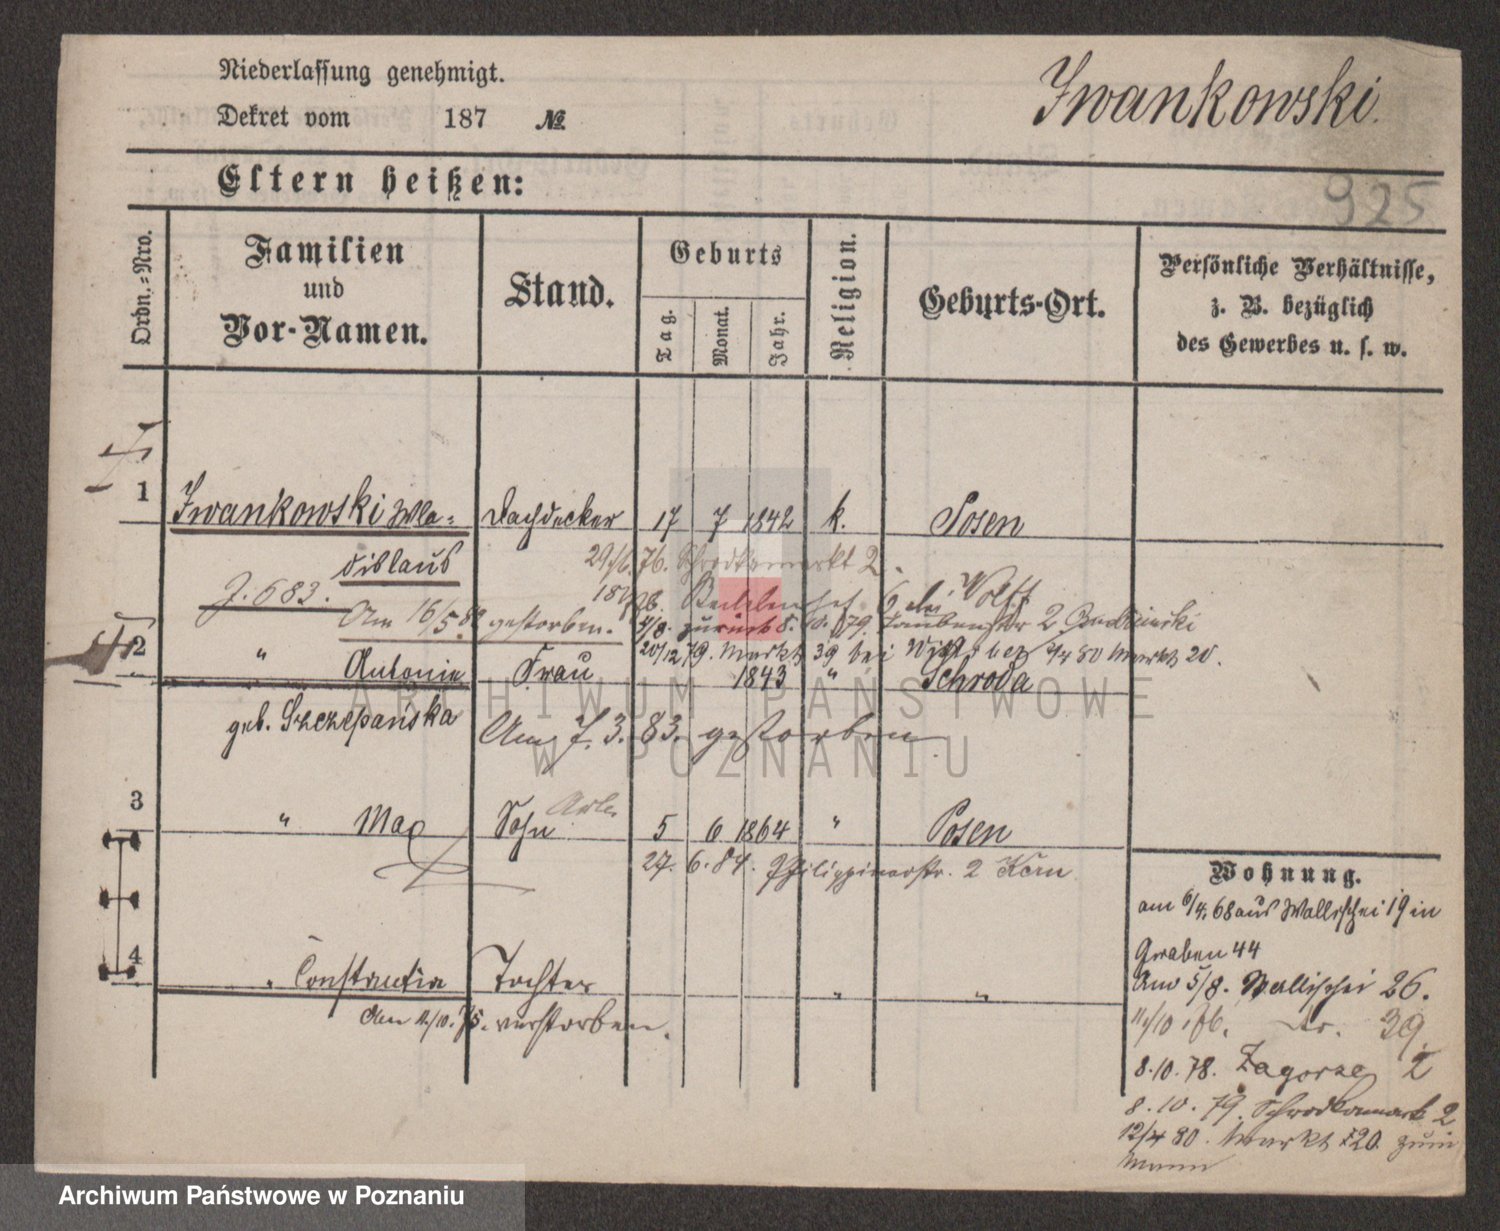 Niederlassung genehmigt.
Dekret vom 187 №
Iwankowski.
Eltern heißen:
925
Ordn.-Nro.
Familien
und
Vor-Namen.
Stand.
Geburts
Tag.
Monat.
Jahr.
Religion.
Geburts-Ort.
Persönliche Verhältnisse,
z. B. bezüglich
des Gewerbes u. s. w.
1 Iwankowski Wla= Dachdecker 17 7 1842 k. Posen
dislaus
29/6. 76. Schrodkamarkt 2.
J. 683.
Wolff
Am 16/5.82 gestorben.
zurück 8. 10. 79. Taubenstr 2
20/12 79. Markt 39 bei 4/4 80 Markt 20.
2 " Antonie Frau 1843 " Schroda
geb. Szczepańska
Am 7. 3. 83. gestorben
3 " Max Sohn 5 6 1864 " Posen
27. 6. 84. Philippinerstr. 2 Kern
4 " Constantia Tochter " "
Am 12/10. 75. verstorben.
Wohnung.
am 6/4. 68 aus Wallischei 19 in
Graben 44
Am 5/8. Wallischei 26.
11/10 39.
8.10. 78. Zagorze 2
8. 10. 79. Schrodkamarkt 2
12/4 80. Markt 20. zum
Mann
ARCHIWUM PAŃSTWOWE
W POZNANIU
Archiwum Państwowe w Poznaniu